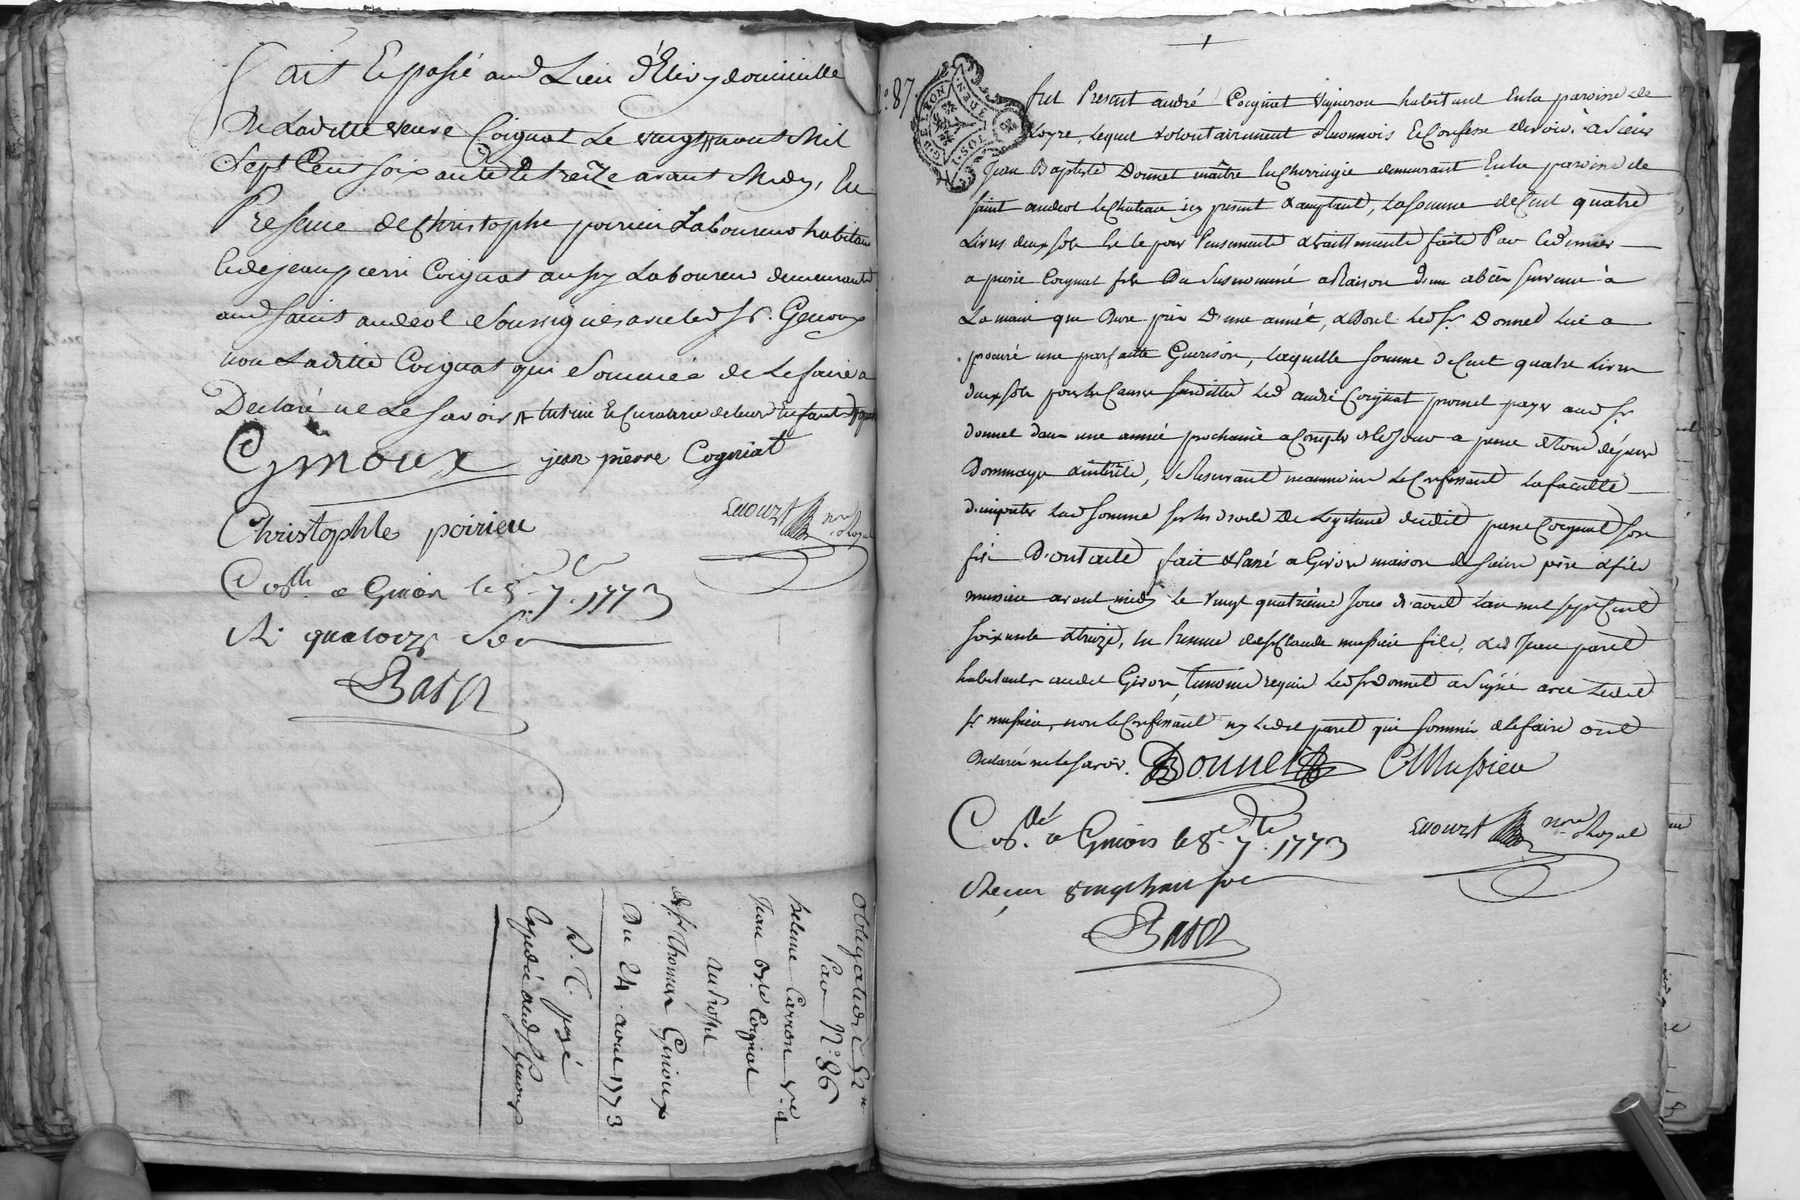 fait & passé aud Lieu d'Elix, domicille
de Laditte veuve Coignat Le vaingt aoust Mil
Sept Cent soix ante & treize avant Midy, En
Presence de Christophe poirieu Laboureur habitant
& de jean pierre Coignat aussy Laboureur demeurants
aud saint andéol soussignés avec led Sr. Genoux
non Laditte Coignat qui sommée de Le faire a
Declaré ne Le savoir
Gynoux jean pierre Cogniat
Christophle poirieu
Not Royal
a Givors le 8e 7bre 1773
R. quatorze sols
Obligation
Par N° 86
helene Carron Ve d
Jean Bte Coignat
Au Profit
de Sr. Thomas Genoux
Du 24 aout 1773
D. C. payé
Expedié aud Sr Genoux
N° 87.
fut Present andré Coignat Vigneron habitant En la paroisse de
Loyre, Lequel volontairement Reconnois & Confesse devoir à Sieur
Jean Baptiste Donnet maitre En Chirurgie demeurant En la paroisse de
saint andeol Le Chateau icy present & acceptant, La somme de Cent quatre
Livres deux sols & ce pour Pensements & traittements faits Par Ce dernier
a pierre Coignat fils Du susnommé a Raison d'un abcès survenu à
La main que Dure prix D'une année, & Dont Led Sr. Donnet Lui a
procuré une parfaitte Guerison, Laquelle somme de Cent quatre Livres
deux sols pour les Causes susdittes Led andré Coignat promet payer aud Sr.
donnet dans une année prochaine a Compter de Ce Jour a peine de tous dépens
Dommages & interets, se Reservant neanmoins Le Confessant La faculté
d'imputer Lad somme sur les droits De Legitime dudit pierre Coignat son
fils D'ont acte fait & Passé a Givors maison de sieurs père & fils
mussieu avant midy Le vingt quatrième Jour d'aout L'an mil sept Cent
soixante & treize, En Presence de Sr Claude mussieu fils, & de Jean paret
habitants audit Givors, temoins requis Led Sr Donnet a signé avec Ledit
Sr. mussieu, non Le Confessant ny Ledit paret qui sommés de Le faire ont
Declaré ne Le savoir. Donnet C Mussieu
Not Royal
a Givors le 8e 7bre 1773
Reçu vingt huit sols